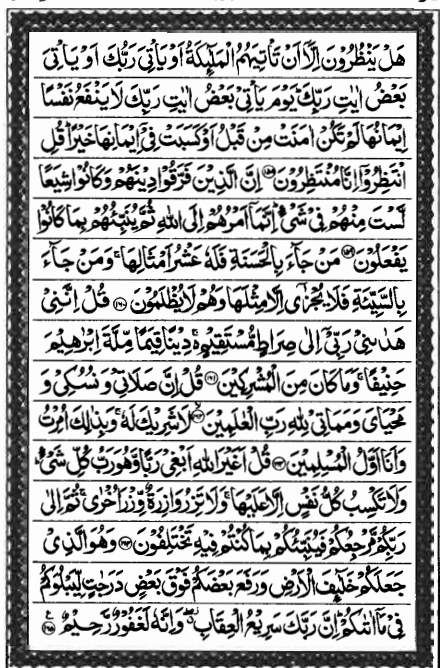 هَلْ يَنْظُرُوْنَ اِلَّاۤ اَنْ تَاْتِيَهُمُ الْمَلٰٓئِكَةُ اَوْ يَاْتِيَ رَبُّكَ اَوْ يَاْتِيَ
بَعْضُ اٰيٰتِ رَبِّكَ ؕ يَوْمَ يَاْتِيْ بَعْضُ اٰيٰتِ رَبِّكَ لَا يَنْفَعُ نَفْسًا
اِيْمَانُهَا لَمْ تَكُنْ اٰمَنَتْ مِنْ قَبْلُ اَوْ كَسَبَتْ فِيْۤ اِيْمَانِهَا خَيْرًا ؕ قُلِ
انْتَظِرُوْۤا اِنَّا مُنْتَظِرُوْنَ ﴿۱۵۸﴾ اِنَّ الَّذِيْنَ فَرَّقُوْا دِيْنَهُمْ وَكَانُوْا شِيَعًا
لَّسْتَ مِنْهُمْ فِيْ شَيْءٍ ؕ اِنَّمَاۤ اَمْرُهُمْ اِلَى اللّٰهِ ثُمَّ يُنَبِّئُهُمْ بِمَا كَانُوْا
يَفْعَلُوْنَ ﴿۱۵۹﴾ مَنْ جَآءَ بِالْحَسَنَةِ فَلَهٗ عَشْرُ اَمْثَالِهَا ۚ وَمَنْ جَآءَ
بِالسَّيِّئَةِ فَلَا يُجْزٰۤى اِلَّا مِثْلَهَا وَهُمْ لَا يُظْلَمُوْنَ ﴿۱۶۰﴾ قُلْ اِنَّنِيْ
هَدٰىنِيْ رَبِّيْۤ اِلٰى صِرَاطٍ مُّسْتَقِيْمٍ ۚ دِيْنًا قِيَمًا مِّلَّةَ اِبْرٰهِيْمَ
حَنِيْفًا ۚ وَمَا كَانَ مِنَ الْمُشْرِكِيْنَ ﴿۱۶۱﴾ قُلْ اِنَّ صَلَاتِيْ وَنُسُكِيْ وَ
مَحْيَايَ وَمَمَاتِيْ لِلّٰهِ رَبِّ الْعٰلَمِيْنَ ﴿۱۶۲﴾ لَا شَرِيْكَ لَهٗ ۚ وَبِذٰلِكَ اُمِرْتُ
وَاَنَا اَوَّلُ الْمُسْلِمِيْنَ ﴿۱۶۳﴾ قُلْ اَغَيْرَ اللّٰهِ اَبْغِيْ رَبًّا وَّهُوَ رَبُّ كُلِّ شَيْءٍ ؕ
وَلَا تَكْسِبُ كُلُّ نَفْسٍ اِلَّا عَلَيْهَا ۚ وَلَا تَزِرُ وَازِرَةٌ وِّزْرَ اُخْرٰى ۚ ثُمَّ اِلٰى
رَبِّكُمْ مَّرْجِعُكُمْ فَيُنَبِّئُكُمْ بِمَا كُنْتُمْ فِيْهِ تَخْتَلِفُوْنَ ﴿۱۶۴﴾ وَهُوَ الَّذِيْ
جَعَلَكُمْ خَلٰٓئِفَ الْاَرْضِ وَرَفَعَ بَعْضَكُمْ فَوْقَ بَعْضٍ دَرَجٰتٍ لِّيَبْلُوَكُمْ
فِيْ مَاۤ اٰتٰىكُمْ ؕ اِنَّ رَبَّكَ سَرِيْعُ الْعِقَابِ ۖ وَاِنَّهٗ لَغَفُوْرٌ رَّحِيْمٌ ﴿۱۶۵﴾